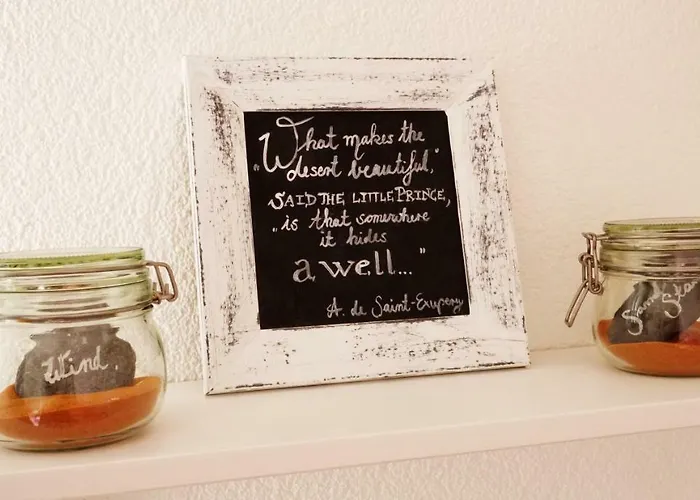 What makes the
„desert beautiful,"
SAID THE LITTLE PRINCE,
„is that somewhere
it hides
a well..."
A. de Saint-Exupery
Wind
Sand